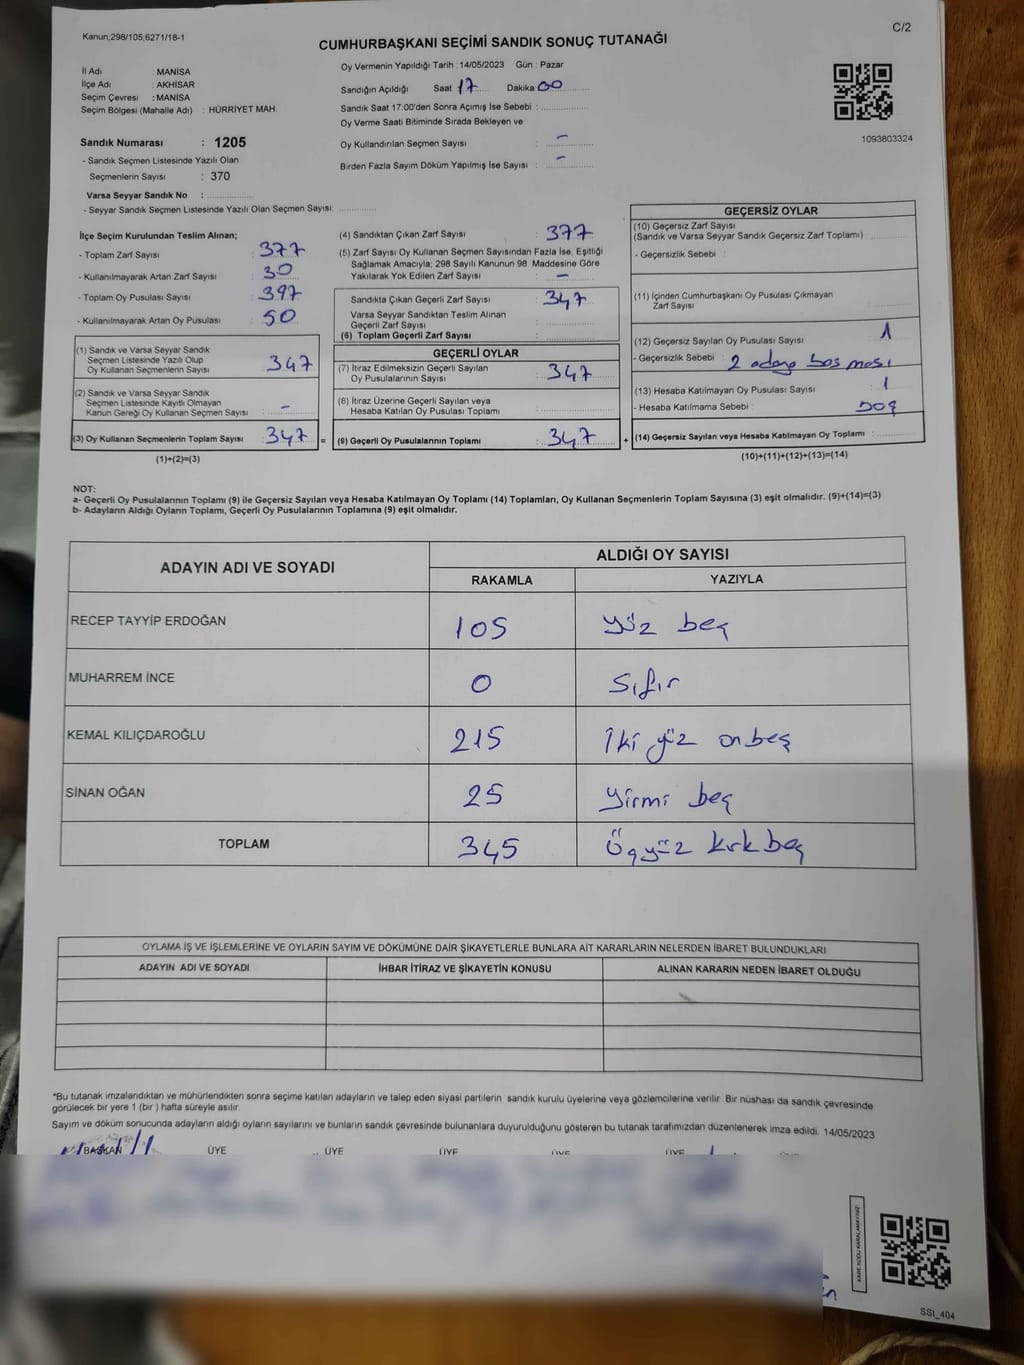 Kanun;298/105;6271/18-1
C/2
CUMHURBAŞKANI SEÇİMİ SANDIK SONUÇ TUTANAĞI
İl Adı : MANİSA
İlçe Adı : AKHİSAR
Seçim Çevresi : MANİSA
Seçim Bölgesi (Mahalle Adı) : HÜRRİYET MAH.
Sandık Numarası : 1205
- Sandık Seçmen Listesinde Yazılı Olan
Seçmenlerin Sayısı : 370
Varsa Seyyar Sandık No :
- Seyyar Sandık Seçmen Listesinde Yazılı Olan Seçmen Sayısı:
Oy Vermenin Yapıldığı Tarih :14/05/2023 Gün : Pazar
Sandığın Açıldığı Saat 17 Dakika 00
Sandık Saat 17:00'den Sonra Açımış İse Sebebi :
Oy Verme Saati Bitiminde Sırada Bekleyen ve
Oy Kullandırılan Seçmen Sayısı : -
Birden Fazla Sayım Döküm Yapılmış İse Sayısı : -
1093803324
İlçe Seçim Kurulundan Teslim Alınan;
- Toplam Zarf Sayısı : 377
- Kullanılmayarak Artan Zarf Sayısı : 30
- Toplam Oy Pusulası Sayısı : 397
- Kullanılmayarak Artan Oy Pusulası : 50
(1) Sandık ve Varsa Seyyar Sandık
Seçmen Listesinde Yazılı Olup
Oy Kullanan Seçmenlerin Sayısı : 347
(2) Sandık ve Varsa Seyyar Sandık
Seçmen Listesinde Kayıtlı Olmayan
Kanun Gereği Oy Kullanan Seçmen Sayısı : -
(3) Oy Kullanan Seçmenlerin Toplam Sayısı : 347 =
(1)+(2)=(3)
(4) Sandıktan Çıkan Zarf Sayısı : 377
(5) Zarf Sayısı Oy Kullanan Seçmen Sayısından Fazla İse, Eşitliği
Sağlamak Amacıyla; 298 Sayılı Kanunun 98. Maddesine Göre
Yakılarak Yok Edilen Zarf Sayısı : -
Sandıkta Çıkan Geçerli Zarf Sayısı : 347
Varsa Seyyar Sandıktan Teslim Alınan
Geçerli Zarf Sayısı :
(6) Toplam Geçerli Zarf Sayısı :
GEÇERLİ OYLAR
(7) İtiraz Edilmeksizin Geçerli Sayılan
Oy Pusulalarının Sayısı : 347
(8) İtiraz Üzerine Geçerli Sayılan veya
Hesaba Katılan Oy Pusulası Toplamı :
(9) Geçerli Oy Pusulalarının Toplamı : 347 +
GEÇERSİZ OYLAR
(10) Geçersiz Zarf Sayısı
(Sandık ve Varsa Seyyar Sandık Geçersiz Zarf Toplamı)
- Geçersizlik Sebebi :
(11) İçinden Cumhurbaşkanı Oy Pusulası Çıkmayan
Zarf Sayısı :
(12) Geçersiz Sayılan Oy Pusulası Sayısı : 1
- Geçersizlik Sebebi : 2 adaya basması
(13) Hesaba Katılmayan Oy Pusulası Sayısı : 1
- Hesaba Katılmama Sebebi : boş
(14) Geçersiz Sayılan veya Hesaba Katılmayan Oy Toplamı :
(10)+(11)+(12)+(13)=(14)
NOT:
a- Geçerli Oy Pusulalarının Toplamı (9) ile Geçersiz Sayılan veya Hesaba Katılmayan Oy Toplamı (14) Toplamları, Oy Kullanan Seçmenlerin Toplam Sayısına (3) eşit olmalıdır. (9)+(14)=(3)
b- Adayların Aldığı Oyların Toplamı, Geçerli Oy Pusulalarının Toplamına (9) eşit olmalıdır.
ADAYIN ADI VE SOYADI
ALDIĞI OY SAYISI
RAKAMLA YAZIYLA
RECEP TAYYİP ERDOĞAN 105 yüz beş
MUHARREM İNCE 0 sıfır
KEMAL KILIÇDAROĞLU 215 iki yüz onbeş
SİNAN OĞAN 25 yirmi beş
TOPLAM 345 Üçyüz kırkbeş
OYLAMA İŞ VE İŞLEMLERİNE VE OYLARIN SAYIM VE DÖKÜMÜNE DAİR ŞİKAYETLERLE BUNLARA AİT KARARLARIN NELERDEN İBARET BULUNDUKLARI
ADAYIN ADI VE SOYADI İHBAR İTİRAZ VE ŞİKAYETİN KONUSU ALINAN KARARIN NEDEN İBARET OLDUĞU
*Bu tutanak imzalandıktan ve mühürlendikten sonra seçime katılan adayların ve talep eden siyasi partilerin sandık kurulu üyelerine veya gözlemcilerine verilir. Bir nüshası da sandık çevresinde
görülecek bir yere 1 (bir ) hafta süreyle asılır.
Sayım ve döküm sonucunda adayların aldığı oyların sayılarını ve bunların sandık çevresinde bulunanlara duyurulduğunu gösteren bu tutanak tarafımızdan düzenlenerek imza edildi. 14/05/2023
BAŞKAN ÜYE ÜYE ÜYE ÜYE ÜYE
KARE KODU KARALAMAYINIZ!
SSI_404